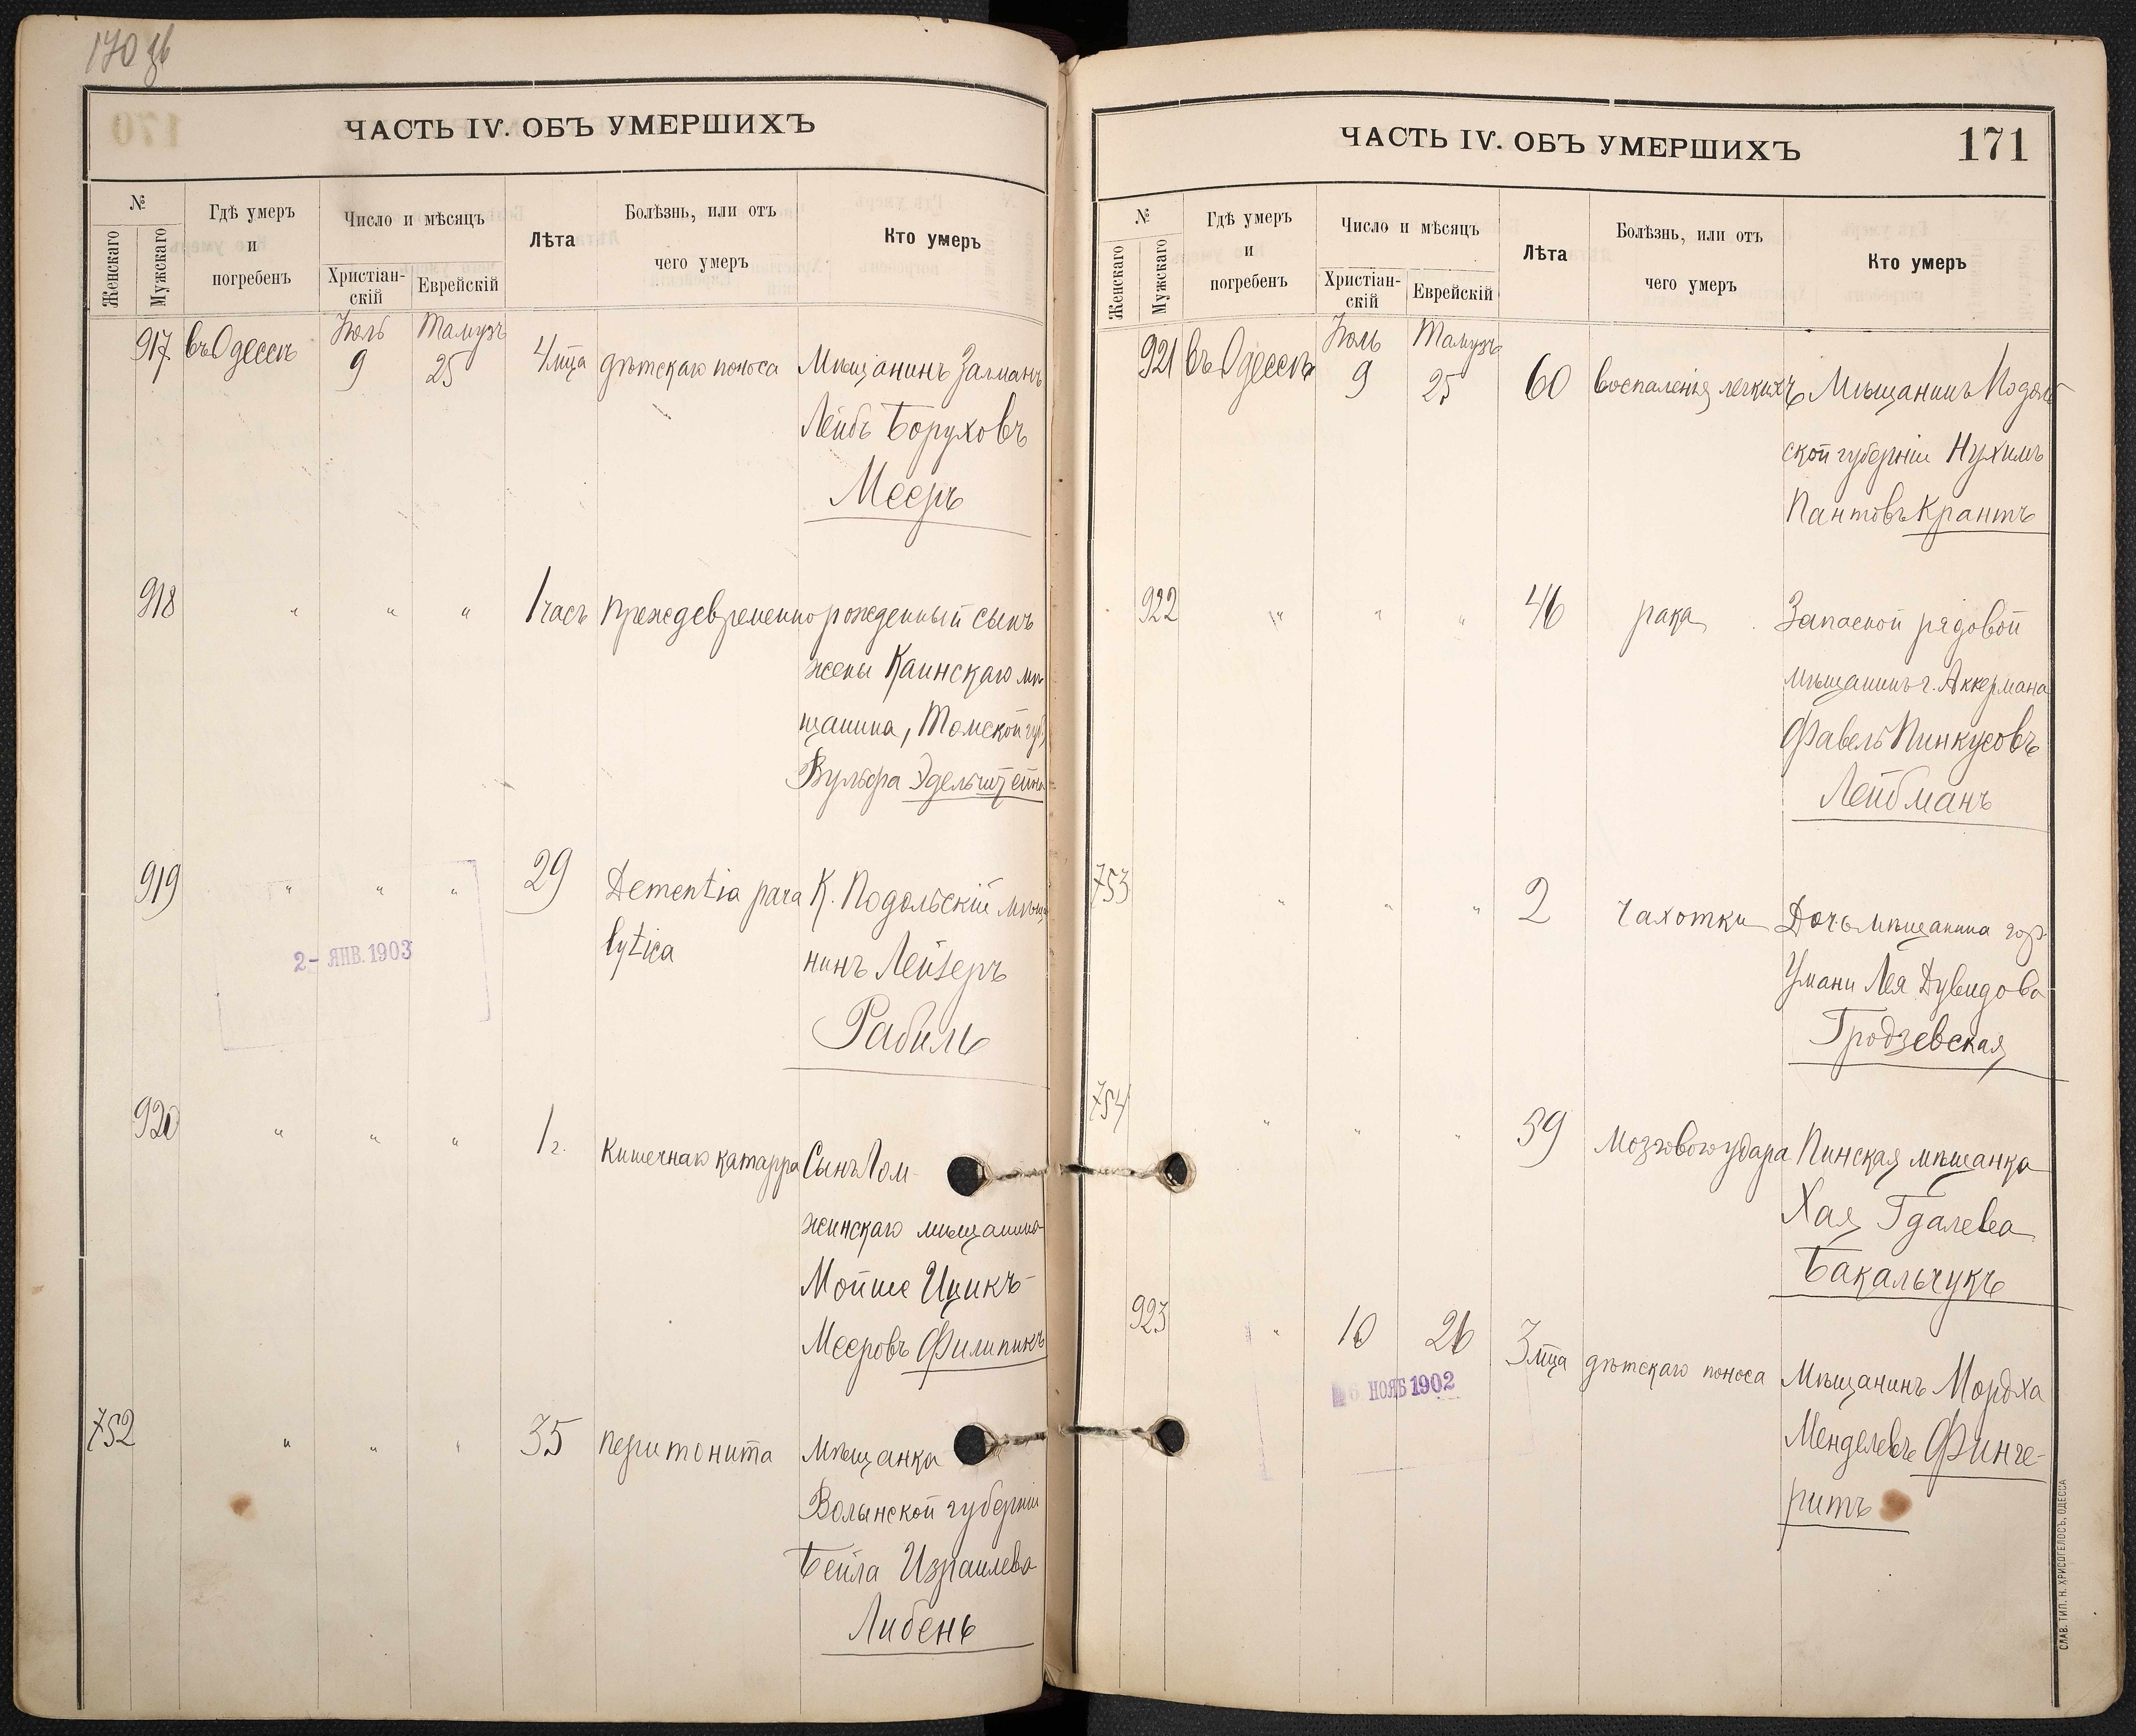 170 зв
ЧАСТЬ IV. ОБЪ УМЕРШИХЪ
№
Женскаго
Мужскаго
Гдѣ умеръ
и
погребенъ
Число и мѣсяцъ
Христіан-
скій
Еврейскій
Лѣта
Болѣзнь, или отъ
чего умеръ
Кто умеръ
917 въ Одессѣ Іюль 9 Тамузъ 25 4 мца дѣтскаго поноса Мѣщанинъ Залманъ
Лейбъ Боруховъ
Мееръ
918 " " " 1 часъ Преждевременно рожденный сынъ
жены Каинскаго мѣ-
щанина, Томской губ.,
Вульфа Эдельштейна
919 " " " 29 Dementia para К. Подольскій мѣща
lytica нинъ Лейзеръ
2- ЯНВ. 1903
Рабиль
920 " " " 1 г. Кишечнаго катарра Сынъ Лом-
жинскаго мѣщанина
Мойше Ицикъ-
Мееровъ Филипикъ
752 " " " 35 перитонита Мѣщанка
Волынской губерніи
Бейла Израилева
Либень
ЧАСТЬ IV. ОБЪ УМЕРШИХЪ
171
№
Женскаго
Мужскаго
Гдѣ умеръ
и
погребенъ
Число и мѣсяцъ
Христіан-
скій
Еврейскій
Лѣта
Болѣзнь, или отъ
чего умеръ
Кто умеръ
921 въ Одессѣ Іюль 9 Тамузъ 25 60 воспаленія легкихъ Мѣщанинъ Подоль
ской губерніи Нухимъ
Пантовъ Крантъ
922 " " " 46 рака Запасной рядовой
мѣщанинъ г. Аккермана
Фавель Пинкусовъ
Лейбманъ
753 " " " 2 чахотки Дочь мѣщанина гор.
Умани Лея Дувидова
Гродзевская
754 " " " 59 мозгового удара Пинская мѣщанка
Хая Гдалева
Бакальчукъ
923 " 10 26 3 мца дѣтскаго поноса Мѣщанинъ Мордха
6 НОЯБ 1902
Менделевъ Финге-
ритъ
СЛАВ. ТИП. Н. ХРИСОГЕЛОСЪ, ОДЕССА